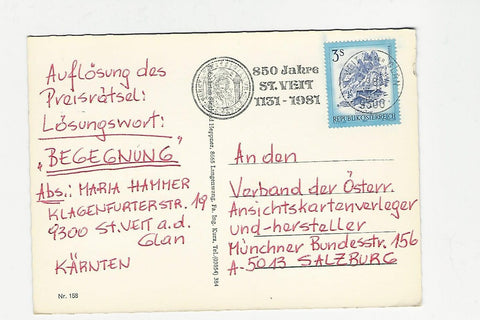 Auflösung des
Preisrätsel:
Lösungswort:
„BEGEGNUNG"
Abs.: MARIA HAMMER
KLAGENFURTERSTR. 19
9300 ST. VEIT a.d.
Glan
KÄRNTEN
Nr. 158
850 Jahre
ST. VEIT
1131-1981
3 S
REPUBLIK ÖSTERREICH
9300
An den
Verband der Österr.
Ansichtskartenverleger
und-hersteller
Münchner Bundesstr. 156
A-5013 SALZBURG